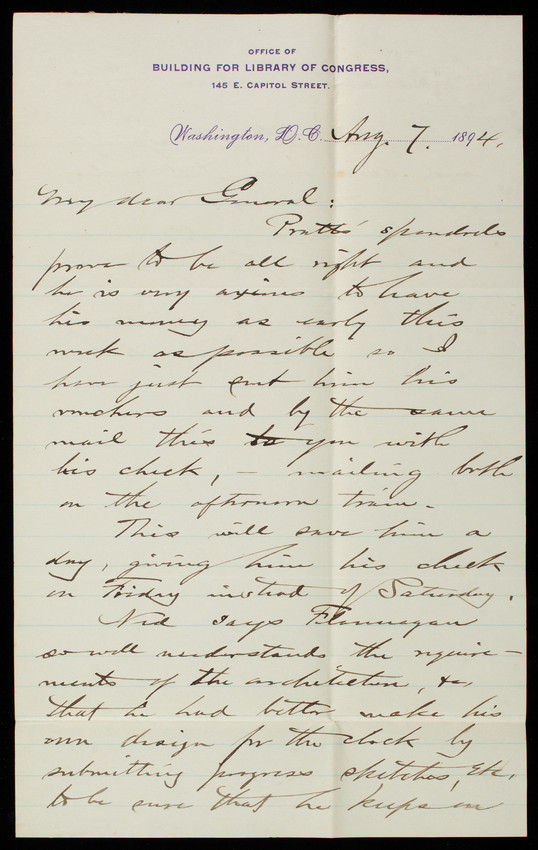 OFFICE OF
BUILDING FOR LIBRARY OF CONGRESS,
145 E. CAPITOL STREET.
Washington, D.C. Aug. 7. 1894.
My dear General:
Pratt's spandrels
prove to be all right and
he is very axious to have
his money as early this
week as possible so I
have just sent him his
vouchers and by the same
mail this to you with
his check, — mailing both
on the afternoon train.
This will save him a
day, giving him his check
on Friday instead of Saturday.
Ned says Flannagan
so well understands the require-
ments of the architecture, &c,
that he had better make his
own design for the clock by
submitting progress sketches, etc.
to be sure that he keeps on